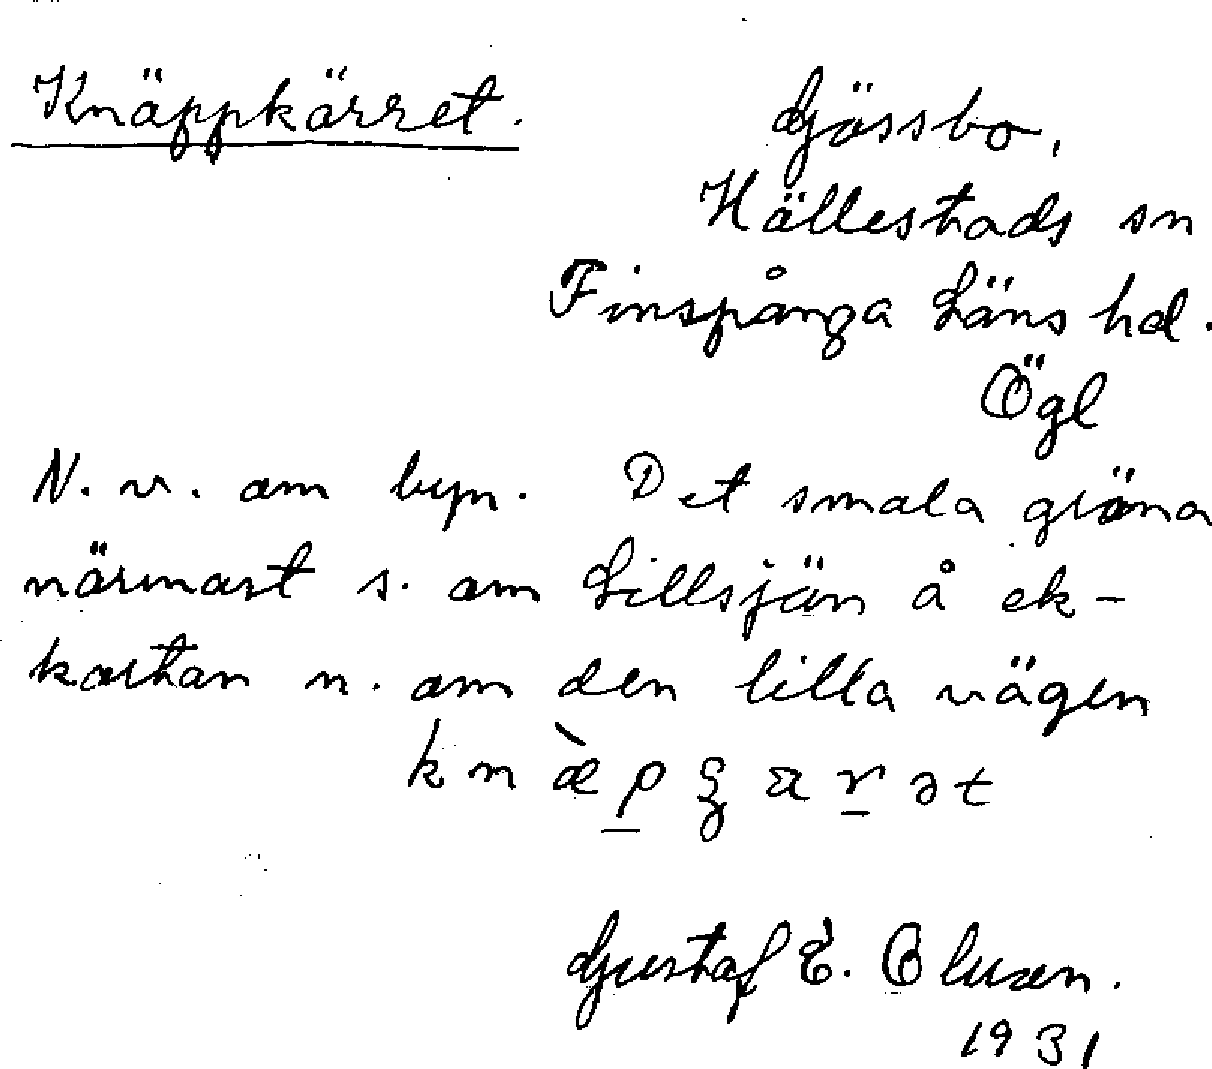 Knäppkärret.
Gjössbo,
Hällestads sn
Finspånga Läns hd.
Ögl
N. v. om byn. Det smala gröna
närmast s. om Lillsjön å ek-
kartan n. om den lilla vägen
Gustaf E. Oluæn.
1931